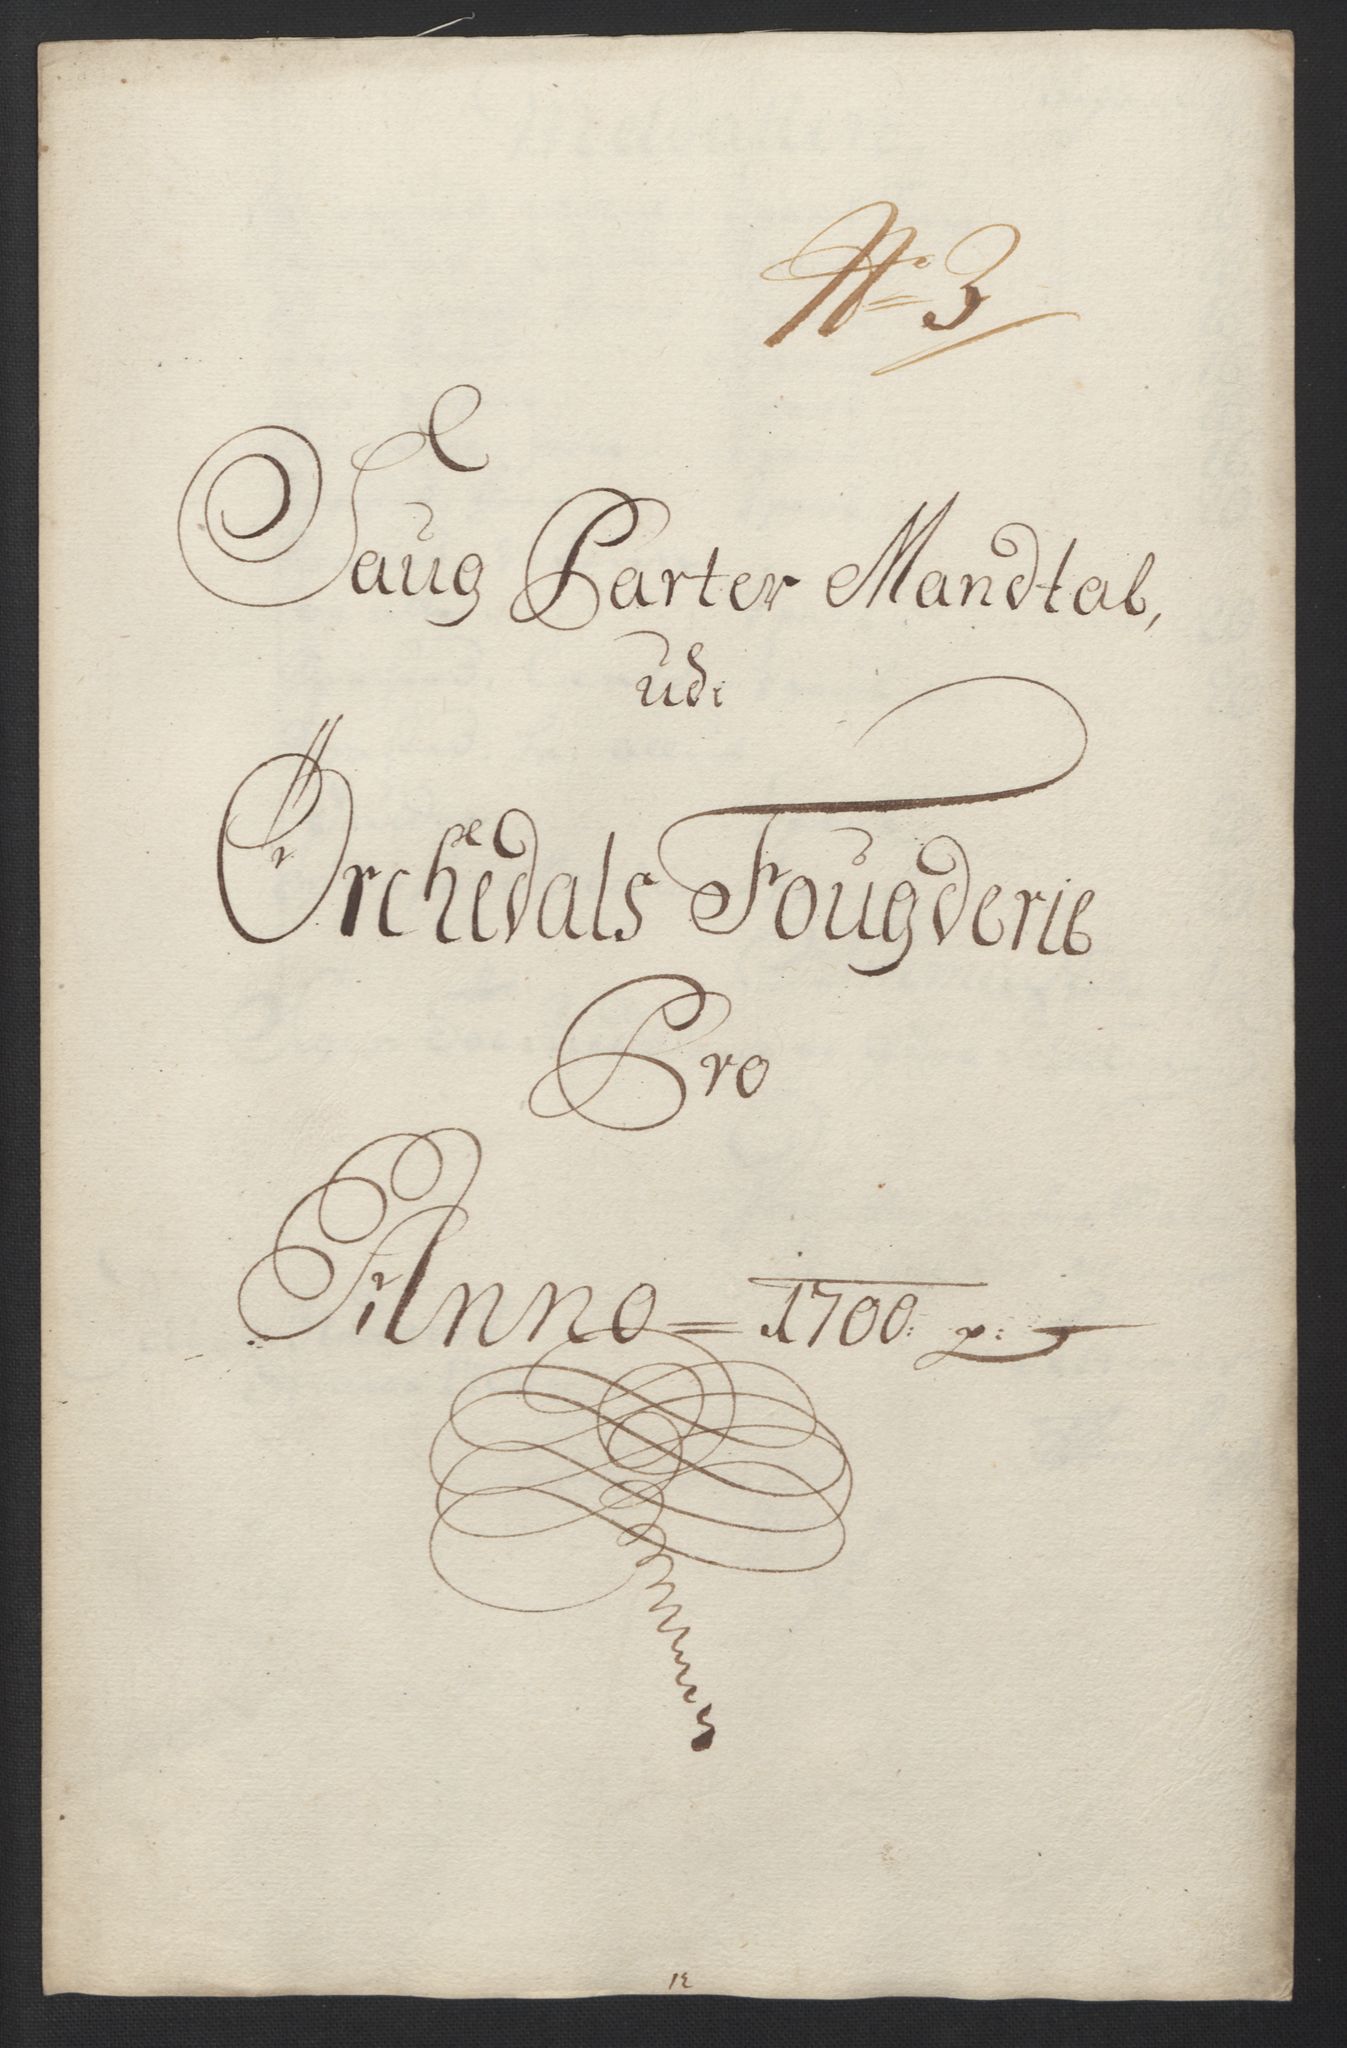 No 3
Saug Parter Mandtal,
udi
Örchedals Fougderie
Pro
Anno = 1700: p: